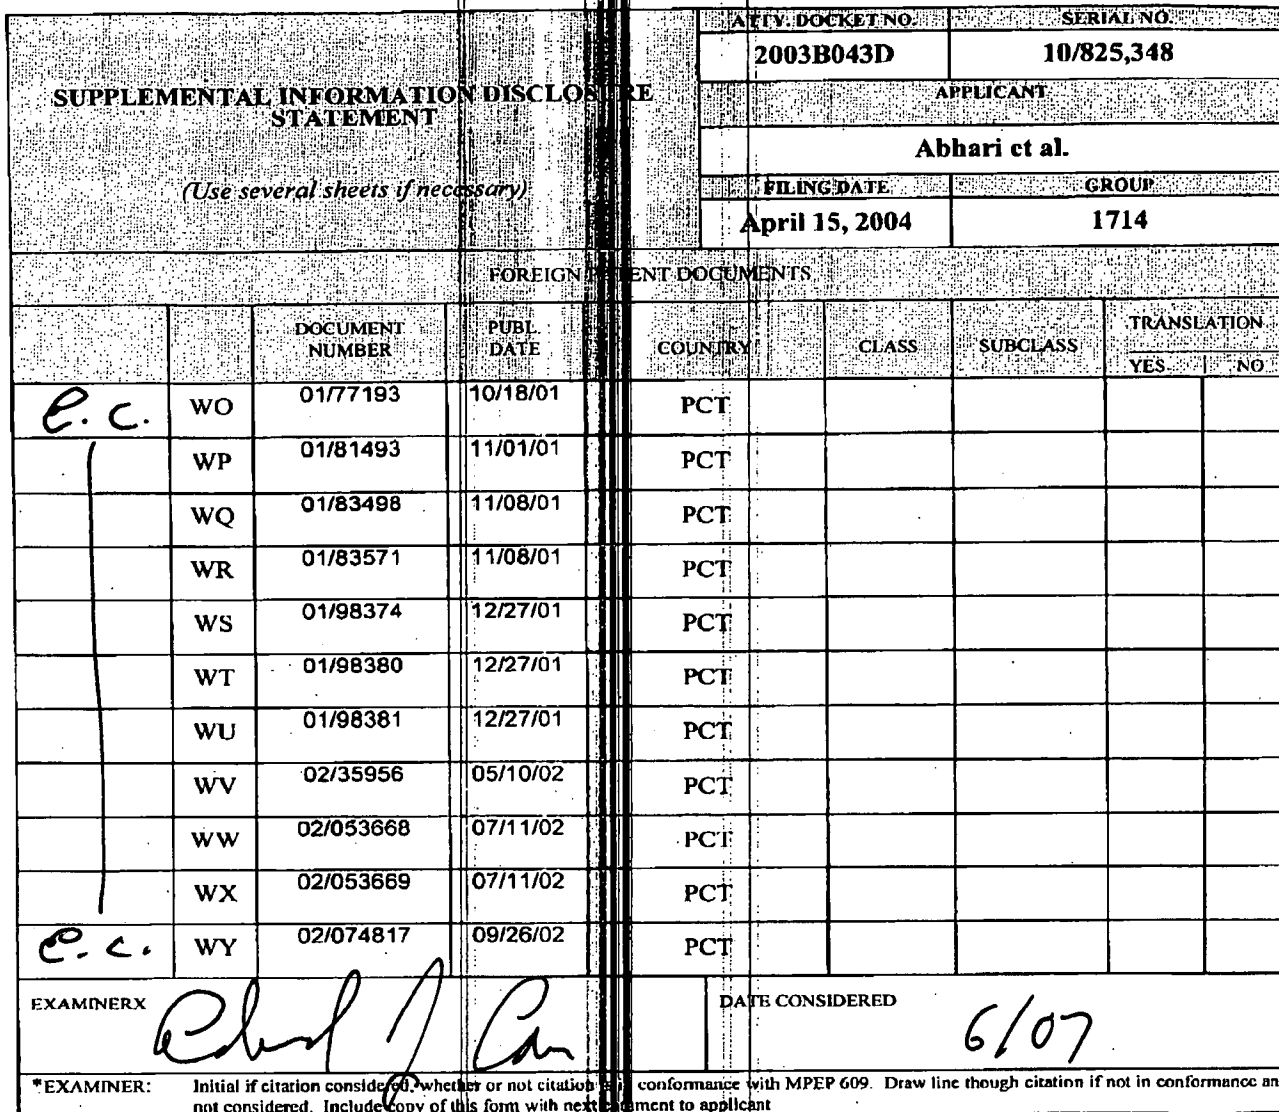 ATTY. DOCKET NO. SERIAL NO.
2003B043D 10/825,348
SUPPLEMENTAL INFORMATION DISCLOSURE
STATEMENT
(Use several sheets if necessary)
APPLICANT
Abhari et al.
FILING DATE GROUP
April 15, 2004 1714
FOREIGN PATENT DOCUMENTS
DOCUMENT NUMBER PUBL. DATE COUNTRY CLASS SUBCLASS TRANSLATION
YES NO
e.c. WO 01/77193 10/18/01 PCT
WP 01/81493 11/01/01 PCT
WQ 01/83498 11/08/01 PCT
WR 01/83571 11/08/01 PCT
WS 01/98374 12/27/01 PCT
WT 01/98380 12/27/01 PCT
WU 01/98381 12/27/01 PCT
WV 02/35956 05/10/02 PCT
WW 02/053668 07/11/02 PCT
WX 02/053669 07/11/02 PCT
e.c. WY 02/074817 09/26/02 PCT
EXAMINERX DATE CONSIDERED 6/07
*EXAMINER: Initial if citation considered, whether or not citation conformance with MPEP 609. Draw line though citation if not in conformance an
not considered. Include copy of this form with next to applicant